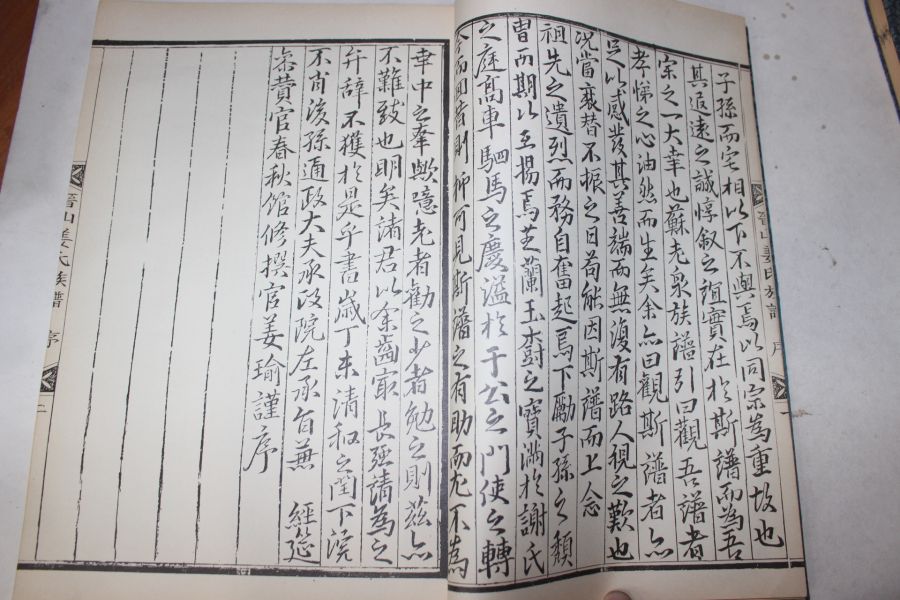 子孫而宅相以下不與焉以同宗為重故也
其追遠之誠惇敘之誼實在於斯譜而為吾
宗之一大幸也蘇老泉族譜引曰觀吾譜者
孝悌之心油然而生矣余亦曰觀斯譜者亦
足以感發其善端而無復有路人視之歎也
況當衰替不振之日苟能因斯譜而上念
祖先之遺烈而務自奮起焉下勵子孫之頹
胄而期以至揚焉芝蘭玉樹之寶滿於謝氏
之庭高車駟馬之慶溢於于公之門使之轉
而者則仰可見斯譜之有助而尤不為
幸中之幸歟噫老者勸之少者勉之則玆亦
不難致也明矣諸君以余齒宬長強請為之
弁辭不獲於是乎書歲丁未清和之閏下浣
不肖後孫通政大夫承政院左承旨兼 經筵
叅贊官春秋館修撰官姜瑜謹序
晉山姜氏族譜 序 二
晉山姜氏族譜 序